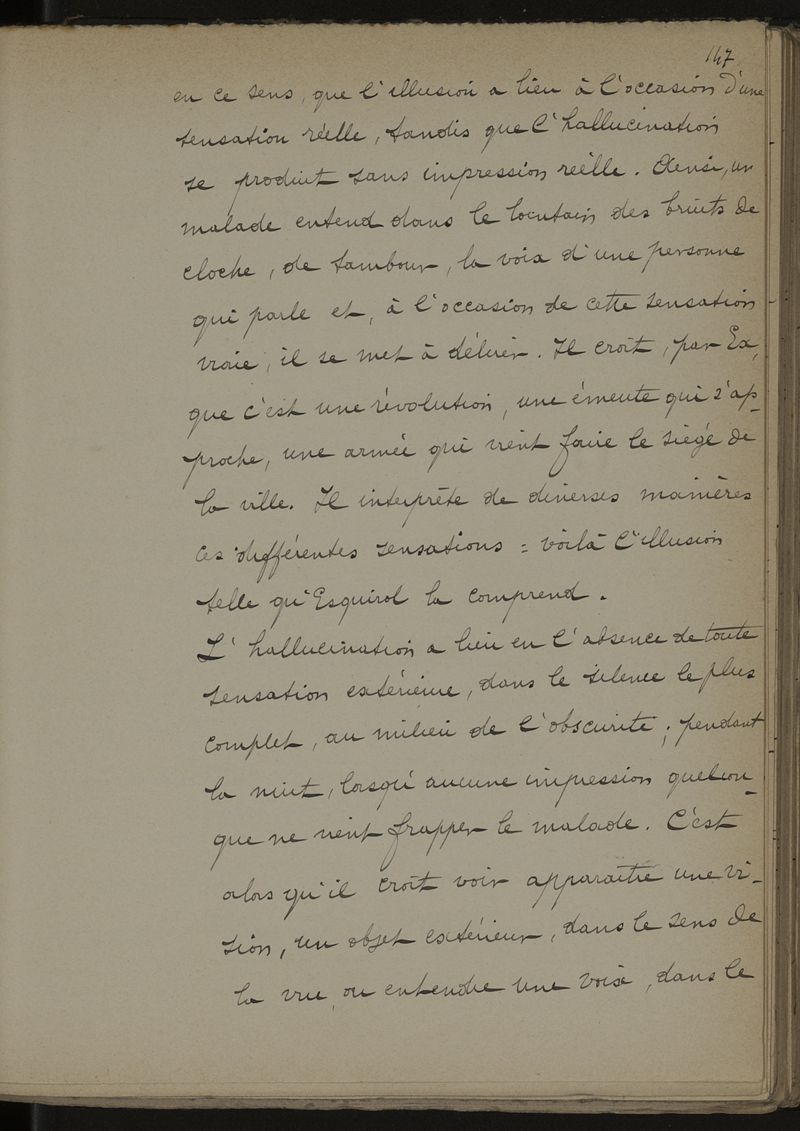 147
en ce sens, que l'illusion a lieu à l'occasion d'une
sensation réelle, tandis que l'hallucination
se produit sans impression réelle. Ainsi, un
malade entend dans le lointain des bruits de
cloche, de tambour, la voix d'une personne
qui parle et, à l'occasion de cette sensation
vraie, il se met à délirer. Il croit, par Ex,
que c'est une révolution, une émeute qui s'ap-
proche, une armée qui vient faire le siège de
la ville. Il interprète de diverses manières
ces différentes sensations = voilà l'illusion
telle qu'Esquirol la comprend.
L'hallucination a lieu en l'absence de toute
sensation extérieure, dans le silence le plus
complet, au milieu de l'obscurité, pendant
la nuit, lorsqu'aucune impression quelcon-
que ne vient frapper le malade. C'est
alors qu'il croit voir apparaître une vi-
sion, un objet extérieur, dans le sens de
la vue, ou entendre une voix, dans le